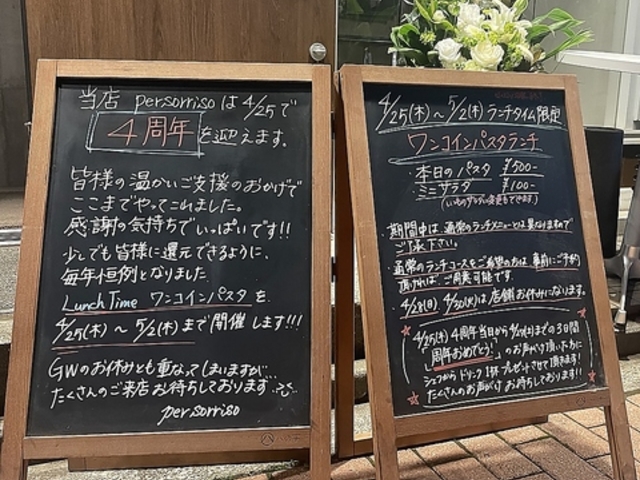 当店 per.sorrisoは4/25で
4周年を迎えます。
皆様の温かいご支援のおかげで
ここまでやってこれました。
感謝の気持ちでいっぱいです!!
少しでも皆様に還元できるように、
毎年恒例となりました
Lunch Time ワンコインパスタを
4/25(木)〜5/2(木)まで開催します!!!
GWのお休みとも重なってしまいますが...
たくさんのご来店お待ちしております
per.sorriso
4/25(木)〜5/2(木)ランチタイム限定
ワンコインパスタランチ
・本日のパスタ ¥500-
・ミニサラダ ¥100-
(いつものサラダに変更もできます。)
期間中は通常のランチメニューとは異なりますので
ご了承下さい。
・通常のランチコースをご希望の方は事前にご予約
頂ければ、ご用意可能です。
4/28(日) 4/30(火)は店舗お休みになります。
4/25(木)4周年当日から4/27(土)までの3日間
「周年おめでとう」のお声がけ頂いた方に
シェフからドリンク1杯プレゼントさせて頂きます!
たくさんのお声がけお待ちしております!!